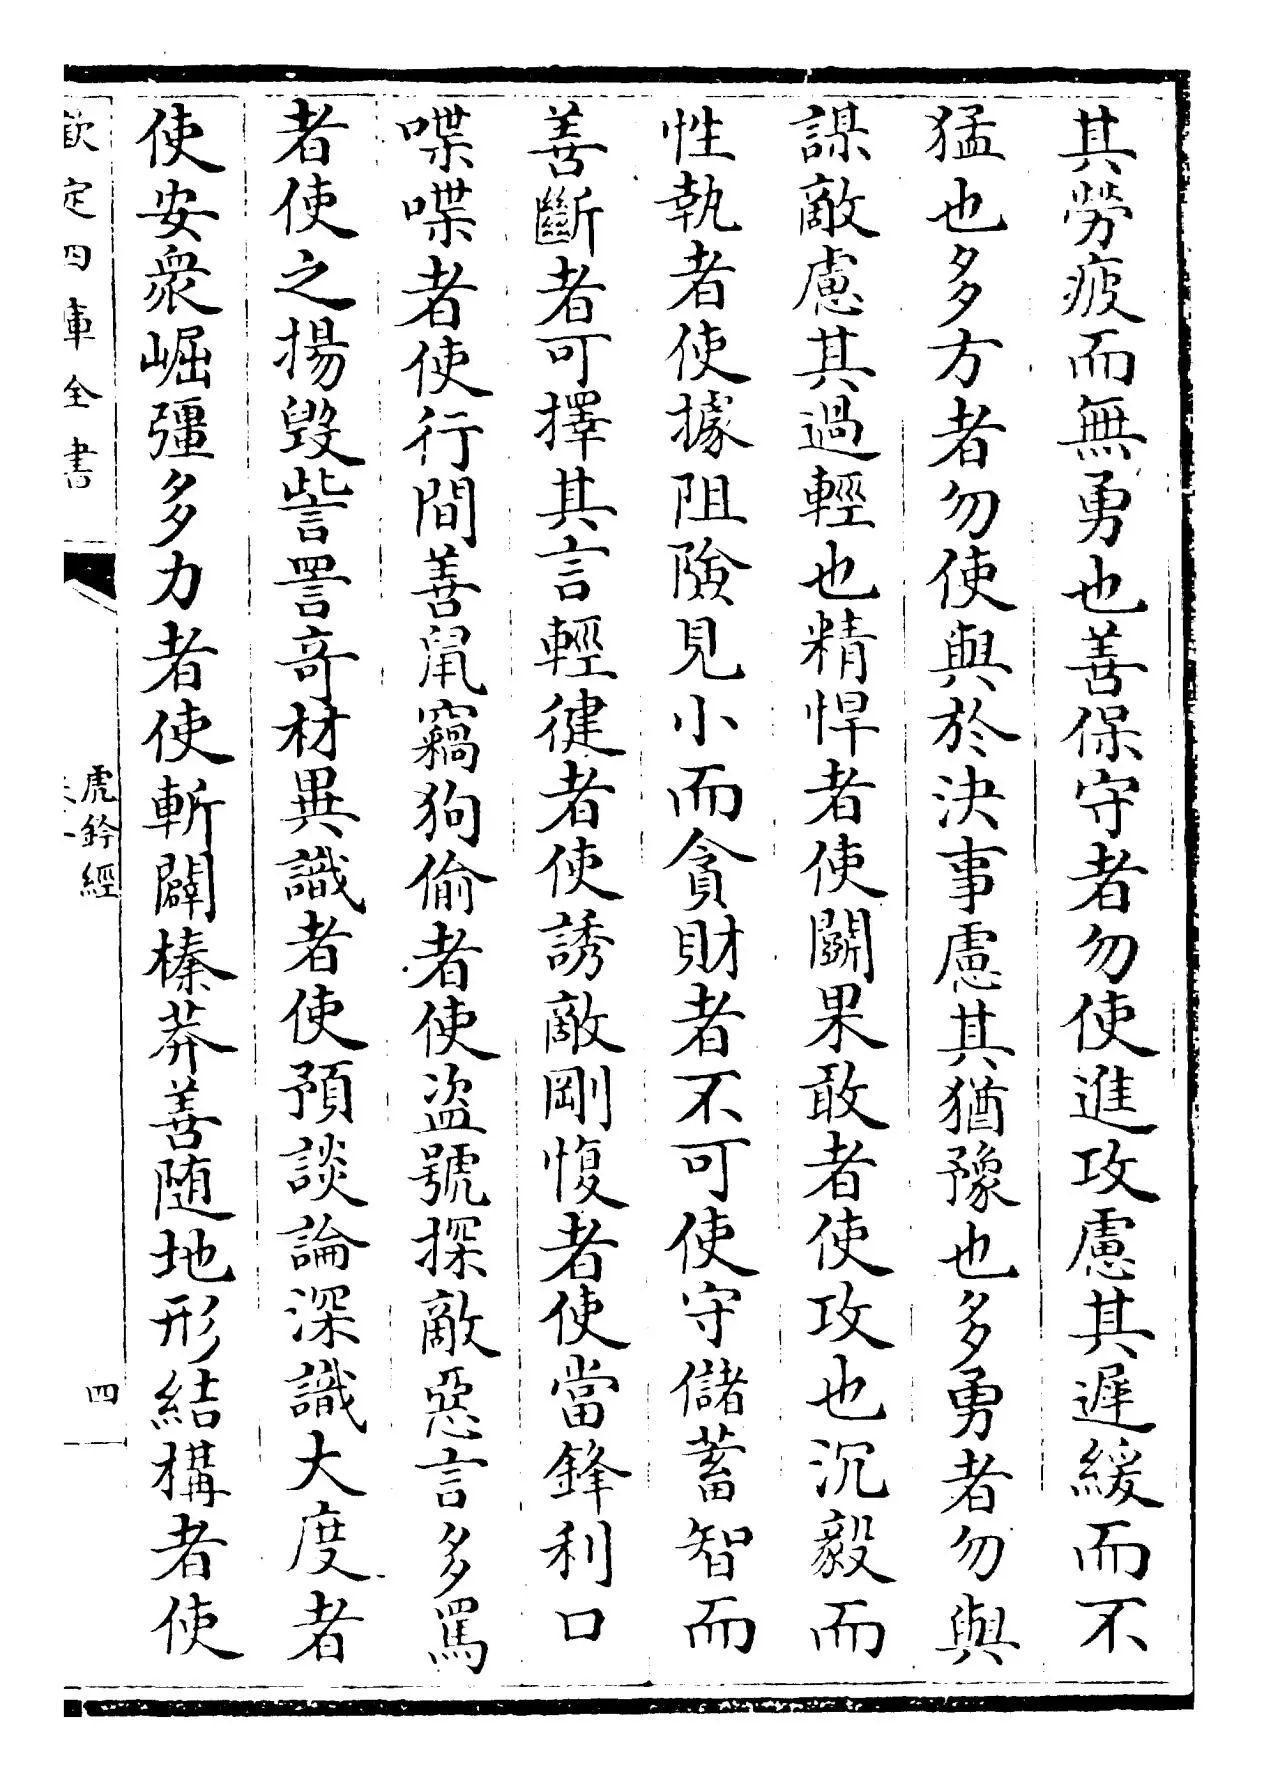 其勞疲而無勇也善保守者勿使進攻慮其遲緩而不
猛也多方者勿使與於決事慮其猶豫也多勇者勿與
謀敵慮其過輕也精悍者使鬭果敢者使攻也沉毅而
性執者使據阻險見小而貪財者不可使守儲蓄智而
善斷者可擇其言輕健者使誘敵剛愎者使當鋒利口
喋喋者使行間善鼠竊狗偷者使盗號探敵惡言多罵
者使之揚毀訾詈奇材異識者使預談論深識大度者
使安衆崛彊多力者使斬闢榛莽善随地形結構者使
欽定四庫全書
虎鈐經
四